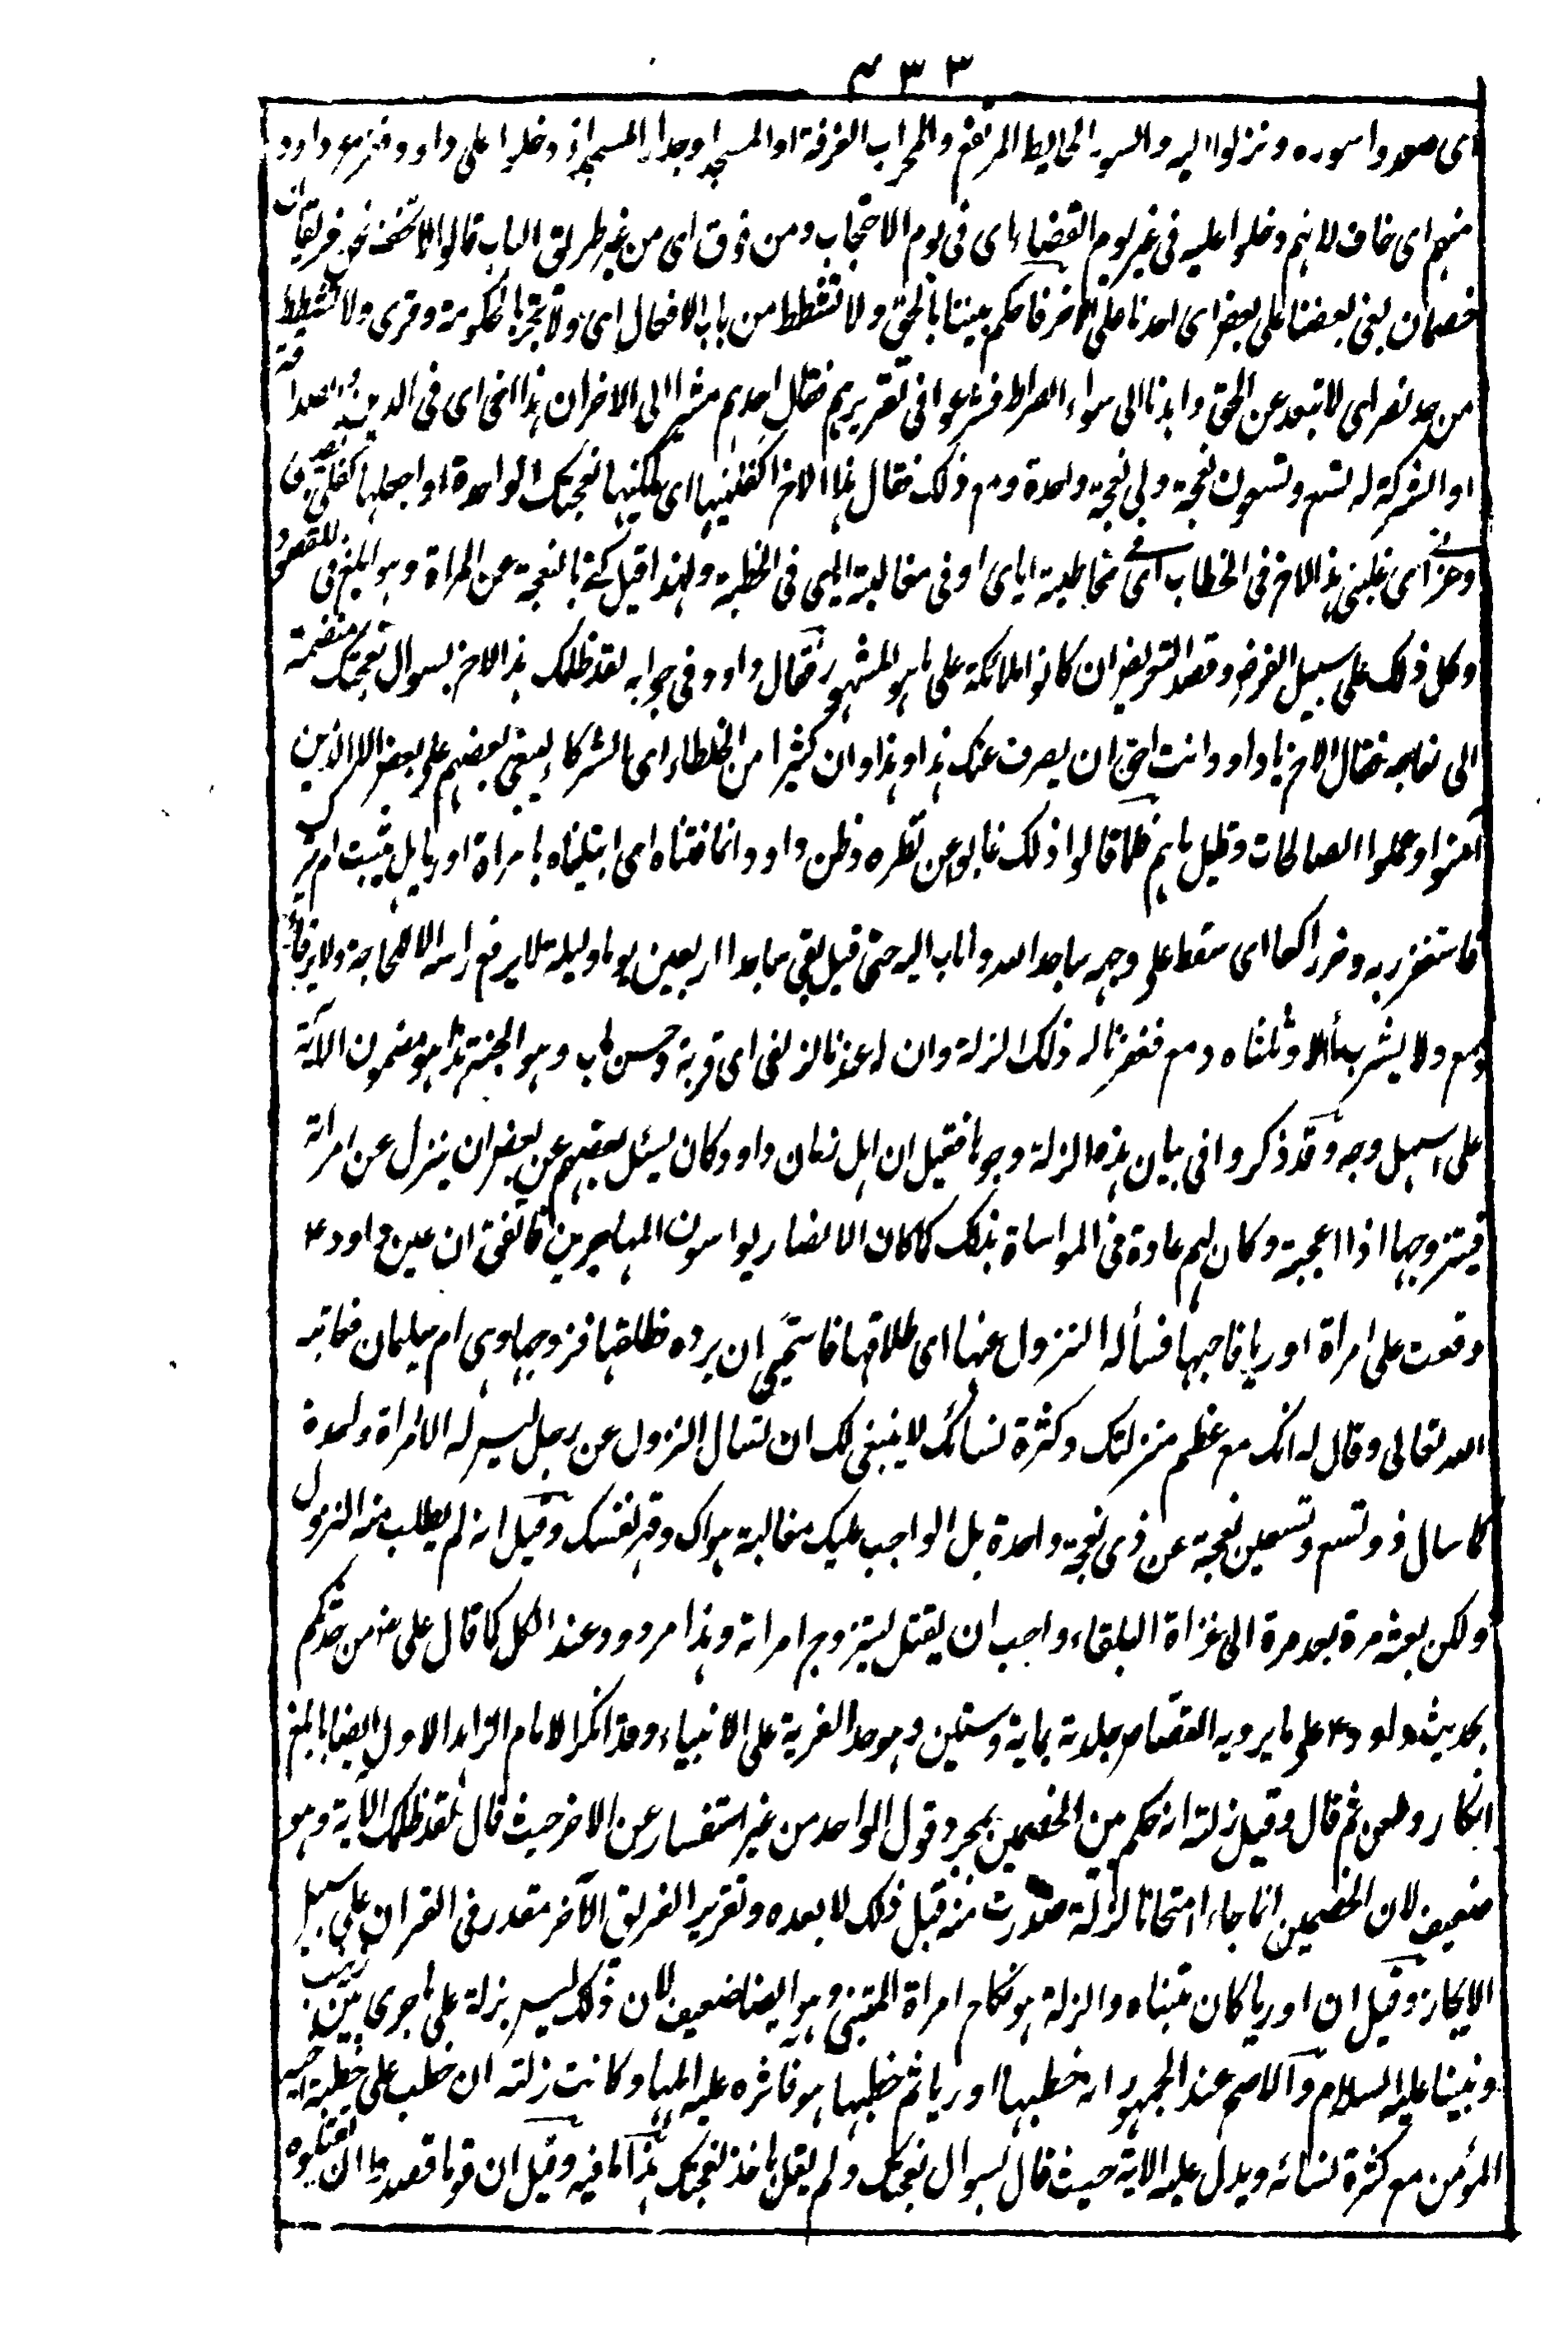 ۴۳۳
اى صعدوا سوره ونزلوا اليه والسور الحايط المرتفع والمحراب الغرفة او المسجد او صدر المسجد اذ دخلوا على داود ففزع داود
منهم اى خاف لانهم دخلوا عليه فى غير يوم القضاء اى فى يوم الاحتجاب ومن فوق اى من غير طريق الباب قالوا لا تخف نحن فريقان
خصمان بغى بعضنا على بعض اى احدنا على الاخر فاحكم بيننا بالحق ولا تشطط من باب الافعال اى ولا تجر بالحكومة وقرى ولا تشطط
من حد نصر اى لا تبعد عن الحق واهدنا الى سواء الصراط فشرعوا فى تقريرهم فقال احدهم مشيرا الى الاخر ان هذا اخى اى فى الدين او الصداقة
او الشركة له تسع وتسعون نعجة ولى نعجة واحدة ومع ذلك فقال هذا الاخر اكفلنيها اى ملكنيها نعجتك الواحدة او اجعلها كفلى اى نصيبى
وعزنى اى غلبنى هذا الاخر فى الخطاب اى فى مخاطبة اياى او فى مغالبة اياى فى الخطبة ولهذا قيل كنى بالنعجة عن المراة وهو ابلغ فى المقصود
وكل ذلك على سبيل الفرض وقصد التعريض ان كانوا ملائكة على ما هو المشهور فقال داود فى جوابه لقد ظلمك هذا الاخر بسوال نعجتك منضمة
الى نعاجه فقال الاخر يا داود وانت احق ان يصرف عنك هذا وهذا وان كثيرا من الخلطاء اى الشركاء ليبغى بعضهم على بعض الا الذين
آمنوا وعملوا الصالحات وقليل ما هم فلما قالوا ذلك غابوا عن نظره وظن داود وانما فتناه اى ابتليناه بامراة اوريا هل يثبت ام يترك
فاستغفر ربه وخر راكعا اى سقط على وجهه ساجدا لله واناب اليه حتى قيل بقى ساجدا اربعين يوما وليلة لا يرفع راسه الا لحاجة ولا يرقأ
دمع ولا يشرب ماء الا وثلثاه دمع فغفرنا له ذلك الزلة وان له عندنا لزلفى اى قربة وحسن مآب وهو الجنة هذا هو مضمون الآية
على اسهل وجه وقد ذكروا فى بيان هذه الزلة وجوها فقيل ان اهل زمان داود كان يسئل بعضهم عن بعض ان ينزل عن امراته
فيتزوجها اذا اعجبته وكان لهم عادة فى المواساة بذلك كما كان الانصار يواسون المهاجرين فاتفق ان عين داود ع
وقعت على امراة اوريا فاحبها فسأله النزول عنها اى طلاقها فاستحيى ان يرده فطلقها فتزوجها وهى ام سليمان فعاتبه
الله تعالى وقال له انك مع عظم منزلتك وكثرة نسائك لا ينبغى لك ان تسال النزول عن رجل ليس له الا امراة واحدة
كما سال ذو تسع وتسعين نعجة عن ذى نعجة واحدة بل الواجب عليك مغالبة هواك وقهر نفسك وقيل انه لم يطلب منه النزول
ولكن بعثه مرة بعد مرة الى غزاة البلقاء واحب ان يقتل ليتزوج امراته وهذا مردود عند الكل كما قال على رض من حدثكم
بحديث داود ع على ما يرويه القصاص جلدته بمائة وستين وهو حد الفرية على الانبياء وقد انكر الامام الزاهد الاول ايضا بابلغ
انكار وطعن ثم قال وقيل زلته انه حكم من الخصمين بمجرد قول الواحد من غير استفسار عن الاخر حيث قال لقد ظلمك الآية وهو
ضعيف لان الخصمين انما جاءا امتحانا لزلة صدرت منه قبل ذلك لا بعده وتقرير الفريق الآخر مقدر فى القران على سبيل
الايجاز وقيل ان اوريا كان متبناه والزلة هو نكاح امراة المتبنى وهو ايضا ضعيف لان ذلك ليس بزلة على ما جرى بين زينب
ونبينا عليه السلام والاصح عند الجمهور انه خطبها اوريا ثم خطبها هو فاثره عليه اهلها وكانت زلته ان خطب على خطبة اخيه
المؤمن مع كثرة نسائه ويدل عليه الاية حيث قال بسوال نعجتك ولم يقل باخذ نعجتك هذا ما فيه وقيل ان قوما قصدوا ان يقتلوه